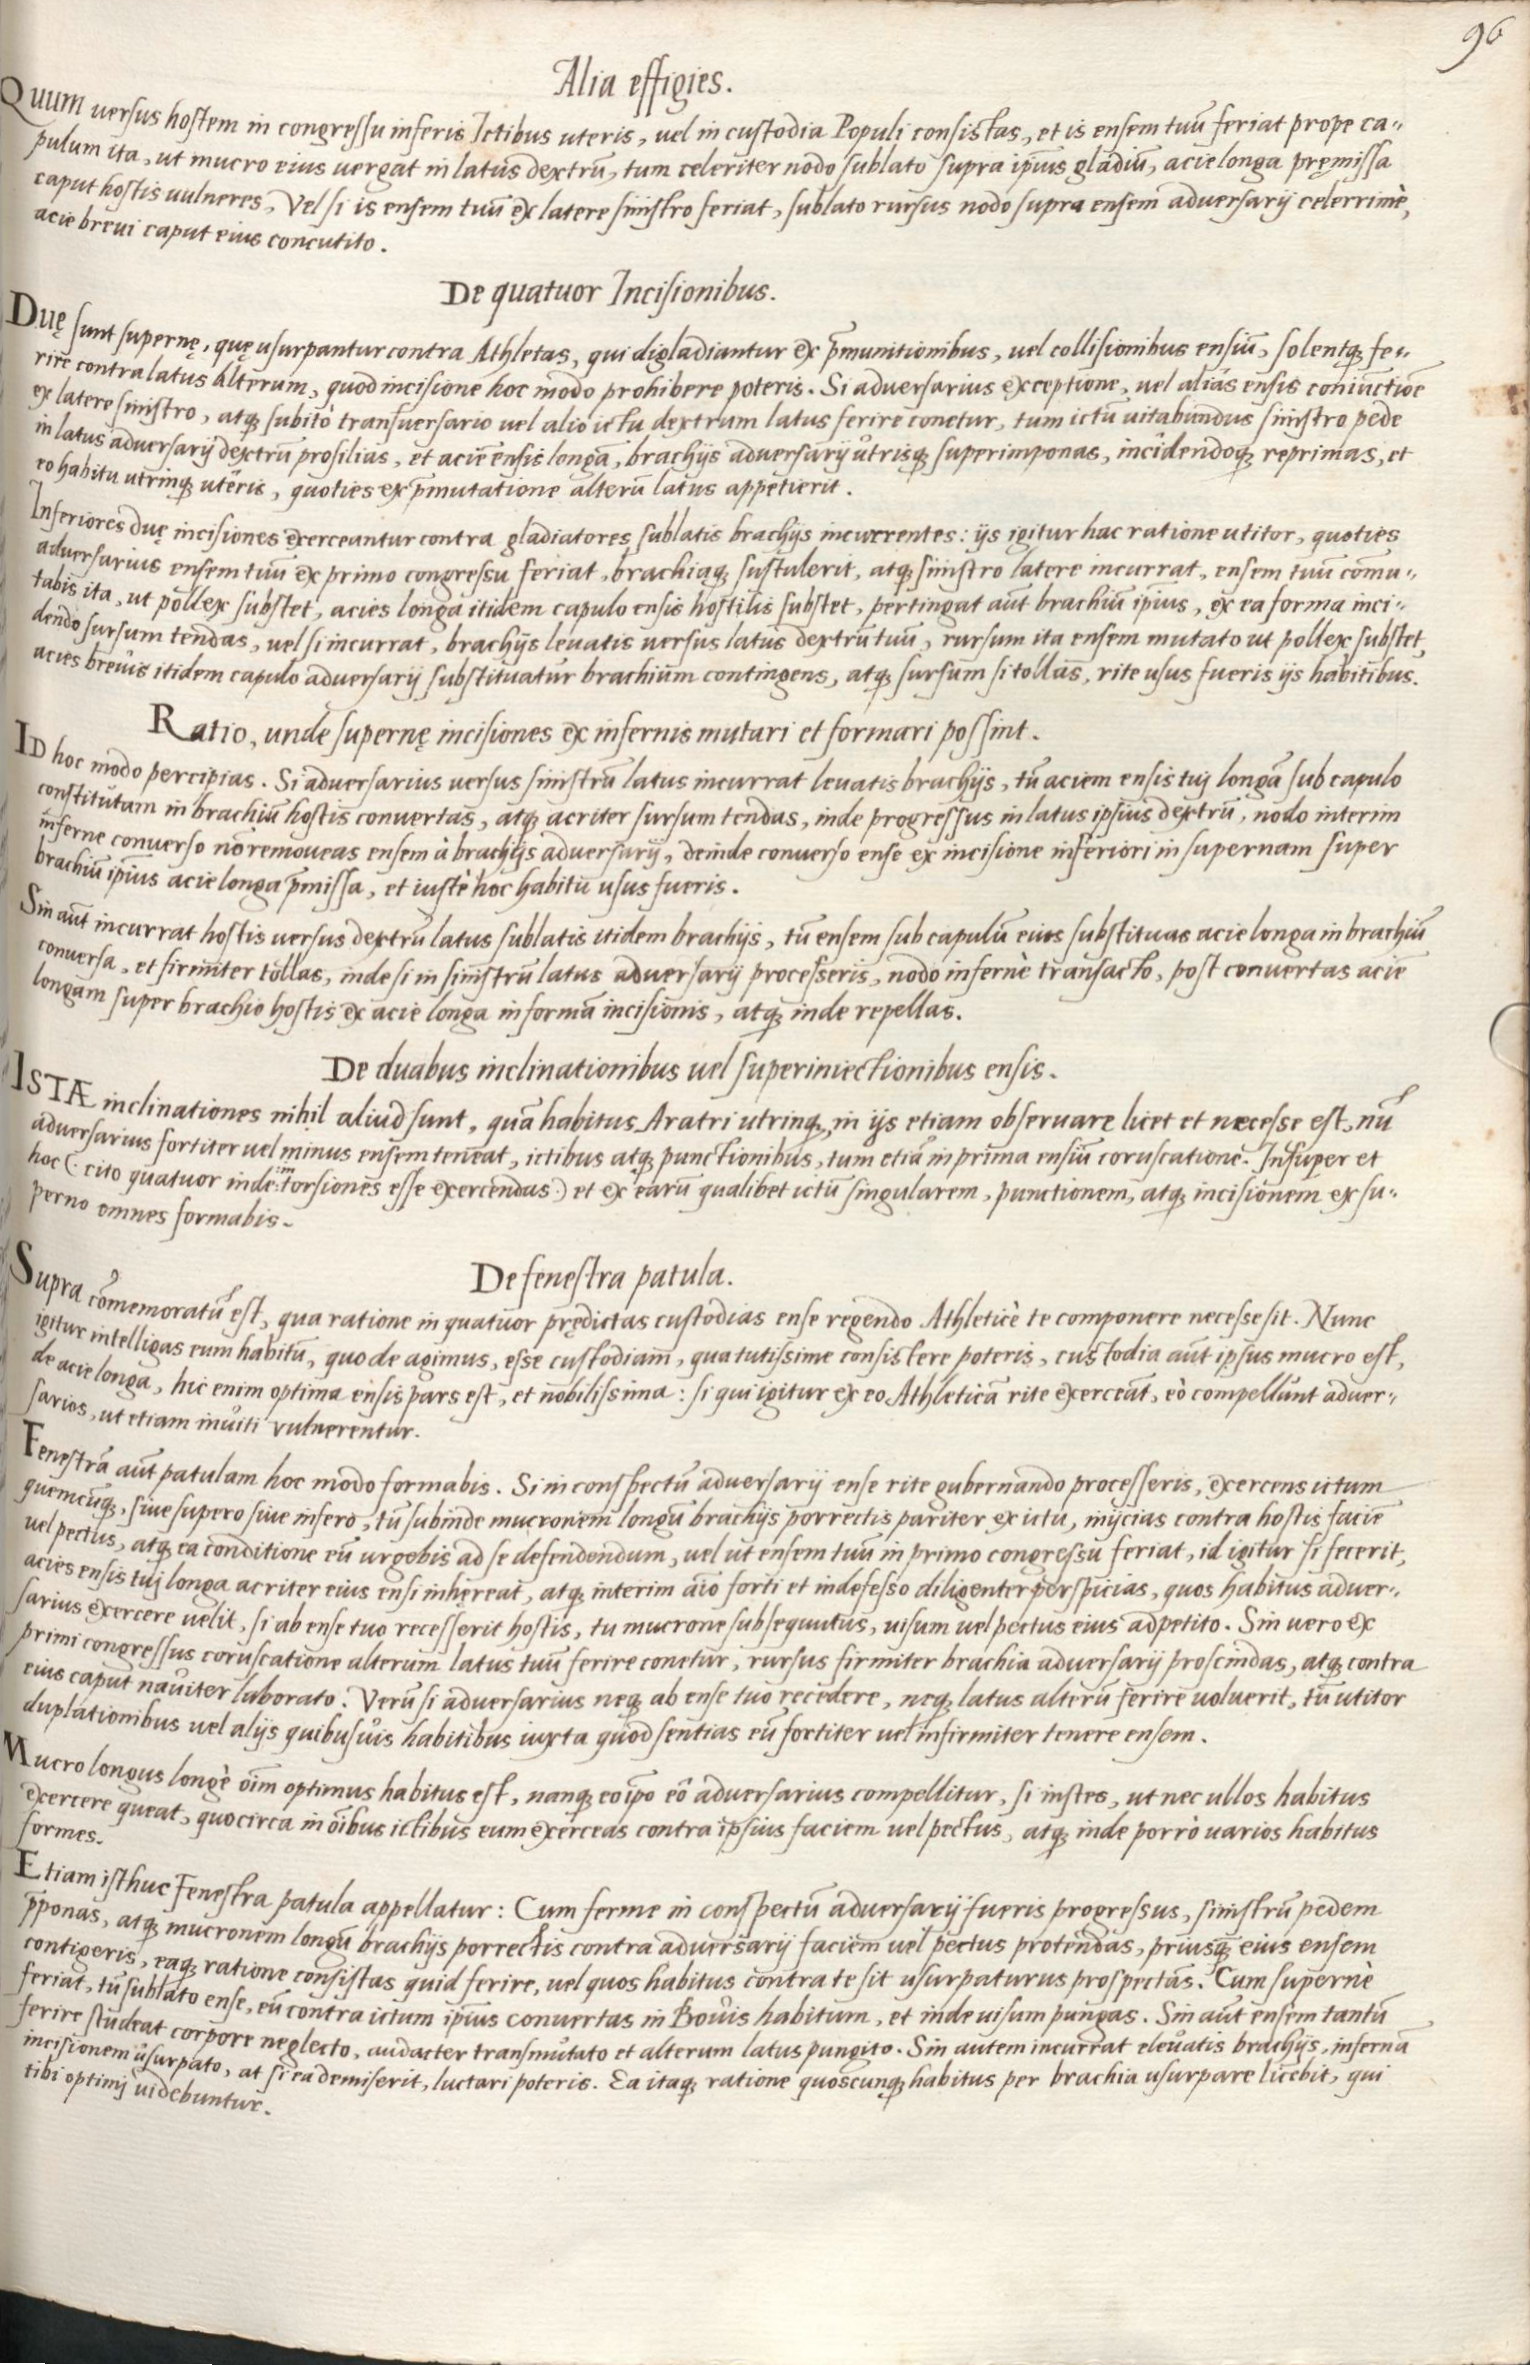 96
Alia effigies.
Quum uersus hostem in congressu inferis Ictibus uteris, uel in custodia Populi consistas, et is ensem tuū feriat prope ca„
pulum ita, ut mucro eius uergat in latus dextrū, tum celeriter nodo sublato supra ipīus gladiū, acie longa pręmissa
caput hostis uulneres, Vel si is ensem tuū ex latere sinistro feriat, sublato rursus nodo supra ensem aduersarij celerrimè,
acie breui caput eius concutito.
De quatuor Incisionibus.
Duę sunt supernę, quę usurpantur contra Athletas, qui digladiantur ex p̄munitionibus, uel collisionibus ensiū, solentq; fe„
rire contra latus alterum, quod incisione hoc modo prohibere poteris. Si aduersarius exceptione, uel alias ensis coniunctiōe
ex latere sinistro, atq; subitò transuersario uel alio ictu dextrum latus ferire conetur, tum ictū uitabundus sinistro pede
in latus aduersarij dextrū prosilias, et aciē ensis longā, brachijs aduersarij utrisq; superimponas, incidendoq; reprimas, et
eo habitu utrinq; uteris, quoties ex p̄mutatione alterū latus appetierit.
Inferiores duę incisiones exerceantur contra gladiatores sublatis brachijs incurrentes: ijs igitur hac ratione utitor, quoties
aduersarius ensem tuū ex primo congressu feriat, brachiaq; sustulerit, atq; sinistro latere incurrat, ensem tuū comu„
tabis ita, ut pollex substet, acies longa itidem capulo ensis hostilis substet, pertingat aut̄ brachiū ipīus, ex ea forma inci„
dendo sursum tendas, uel si incurrat, brachijs leuatis uersus latus dextrū tuū, rursum ita ensem mutato ut pollex substet,
acies breuis itidem capulo aduersarij substituatur brachium contingens, atq; sursum si tollas, rite usus fueris ijs habitibus.
Ratio, unde supernę incisiones ex infernis mutari et formari possint.
ID hoc modo percipias. Si aduersarius uersus sinistrū latus incurrat leuatis brachijs, tū aciem ensis tuj longā sub capulo
constitutam in brachiū hostis conuertas, atq; acriter sursum tendas, inde progressus in latus ipsius dextrū, nodo interim
inferne conuerso nō remoueas ensem à brachijs aduersarij, deinde conuerso ense ex incisione inferiori in supernam super
brachiū ipīus acie longa p̄missa, et iustè hoc habitu usus fueris.
Sin aut̄ incurrat hostis uersus dextrū latus sublatis itidem brachijs, tū ensem sub capulū eius substituas acie longa in brachiū
conuersa, et firmiter tollas, inde si in sinistrū latus aduersarij processeris, nodo infernè transacto, post conuertas aciē
longam super brachio hostis ex acie longa in formā incisionis, atq; inde repellas.
De duabus inclinationibus uel superiniectionibus ensis.
ISTÆ inclinationes nihil aliud sunt, quā habitus Aratri utrinq;, in ijs etiam obseruare licet et necesse est, nū
aduersarius fortiter uel minus ensem teneat, ictibus atq; punctionibus, tum etiā in prima ensiū coruscatione. Insuper et
hoc (: cito quatuor inde intorsiones esse exercendas :) et ex earū qualibet ictū singularem, punctionem, atq; incisionem ex su„
perno omnes formabis.
De fenestra patula.
Supra cōmemoratū est, qua ratione in quatuor prędictas custodias ense regendo Athleticè te componere necesse sit. Nunc
igitur intelligas eum habitū, quo de agimus, esse custodiam, qua tutissime consistere poteris, custodia aut̄ ipsus mucro est,
de acie longa, hic enim optima ensis pars est, et nobilissima: si qui igitur ex eo Athleticā rite exerceāt, eò compellunt aduer„
sarios, ut etiam inuiti vulnerentur.
Fenestrā aut̄ patulam hoc modo formabis. Si in conspectū aduersarij ense rite gubernando processeris, exercens ictum
quemcūq;, siue supero siue infero, tū subinde mucronem longū brachijs porrectis pariter ex ictu, inijcias contra hostis faciē
uel pectus, atq; ea conditione eū urgebis ad se defendendum, uel ut ensem tuū in primo congressu feriat, id igitur si fecerit,
acies ensis tuj longa acriter eius ensi inhęreat, atq; interim aīo forti et indefesso diligenter perspicias, quos habitus aduer„
sarius exercere uelit, si ab ense tuo recesserit hostis, tu mucrone subsequutus, uisum uel pectus eius adpetito. Sin uero ex
primi congressus coruscatione alterum latus tuū ferire conetur, rursus firmiter brachia aduersarij proscindas, atq; contra
eius caput nauiter laborato. Verū si aduersarius neq; ab ense tuo recedere, neq; latus alterū ferire uoluerit, tū utitor
duplationibus uel alijs quibusuis habitibus iuxta quod sentias eū fortiter uel infirmiter tenere ensem.
Mucro longus longè oīm optimus habitus est, nanq; eo ipō eō aduersarius compellitur, si instes, ut nec ullos habitus
exercere queat, quocirca in oībus ictibus eum exerceas contra ipsius faciem uel pectus, atq; inde porrò uarios habitus
formes.
Etiam isthuc Fenestra patula appellatur: Cum ferme in conspectū aduersarij fueris progressus, sinistrū pedem
p̄ponas, atq; mucronem longū brachijs porrectis contra aduersarij faciem uel pectus protendas, priusq; eius ensem
contigeris, eaq; ratione consistas quid ferire, uel quos habitus contra te sit usurpaturus prospectās. Cum supernè
feriat, tū sublato ense, eū contra ictum ipīus conuertas in Bouis habitum, et inde uisum pungas. Sin aut̄ ensem tantū
ferire studeat corpore neglecto, audacter transmutato et alterum latus pungito. Sin autem incurrat eleuatis brachijs, infernā
incisionem usurpato, at si ea demiserit, luctari poteris. Ea itaq; ratione quoscunq; habitus per brachia usurpare licebit, qui
tibi optimj uidebuntur.